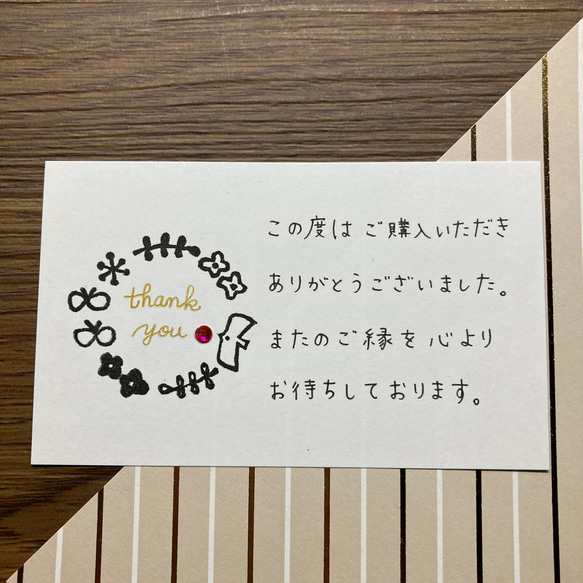 thank
you
この度は ご購入いただき
ありがとうございました。
またのご縁を 心より
お待ちしております。